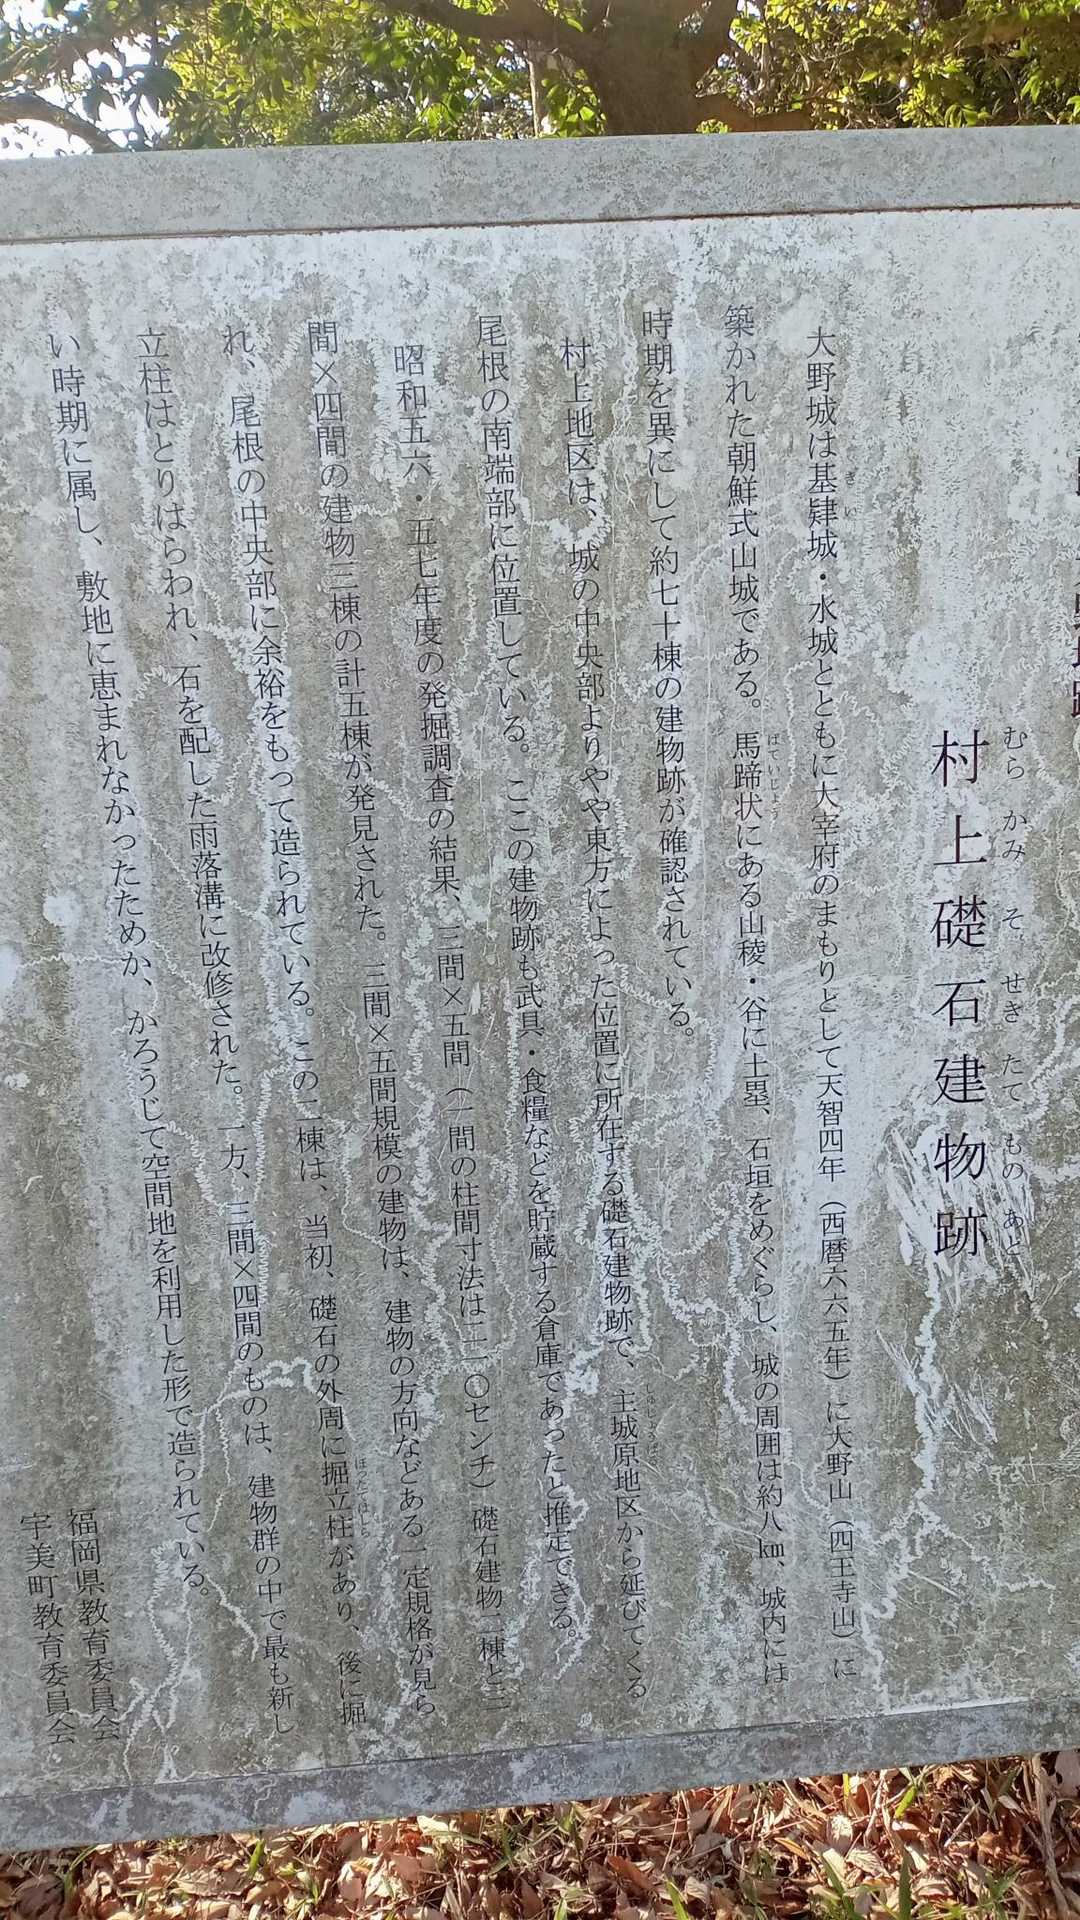 村上礎石建物跡
むらかみそせきたてものあと
大野城は基肄城・水城とともに大宰府のまもりとして天智四年（西暦六六五年）に大野山（四王寺山）に
きい
築かれた朝鮮式山城である。馬蹄状にある山稜・谷に土塁、石垣をめぐらし、城の周囲は約八㎞、城内には
ばていじょう
時期を異にして約七十棟の建物跡が確認されている。
村上地区は、城の中央部よりやや東方によった位置に所在する礎石建物跡で、主城原地区から延びてくる
しゅじょうばる
尾根の南端部に位置している。ここの建物跡も武具・食糧などを貯蔵する倉庫であったと推定できる。
昭和五六・五七年度の発掘調査の結果、三間×五間（一間の柱間寸法は二一〇センチ）礎石建物二棟と三
間×四間の建物三棟の計五棟が発見された。三間×五間規模の建物は、建物の方向などある一定規格が見ら
れ、尾根の中央部に余裕をもって造られている。この二棟は、当初、礎石の外周に掘立柱があり、後に掘
ほったてばしら
立柱はとりはらわれ、石を配した雨落溝に改修された。一方、三間×四間のものは、建物群の中で最も新し
い時期に属し、敷地に恵まれなかったためか、かろうじて空間地を利用した形で造られている。
福岡県教育委員会
宇美町教育委員会